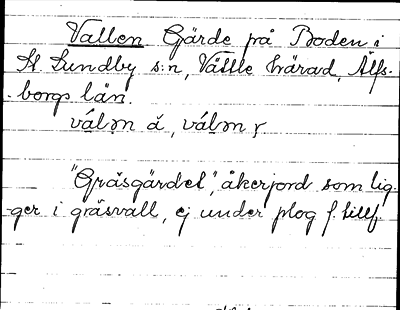 Vallen Gärde på Boden i
St Lundby s:n, Vättle härad, Älfs-
borgs län.
válən á, válən r
"Gräsgärdet", åkerjord som lig-
ger i gräsvall, ej under plog f. tillf.